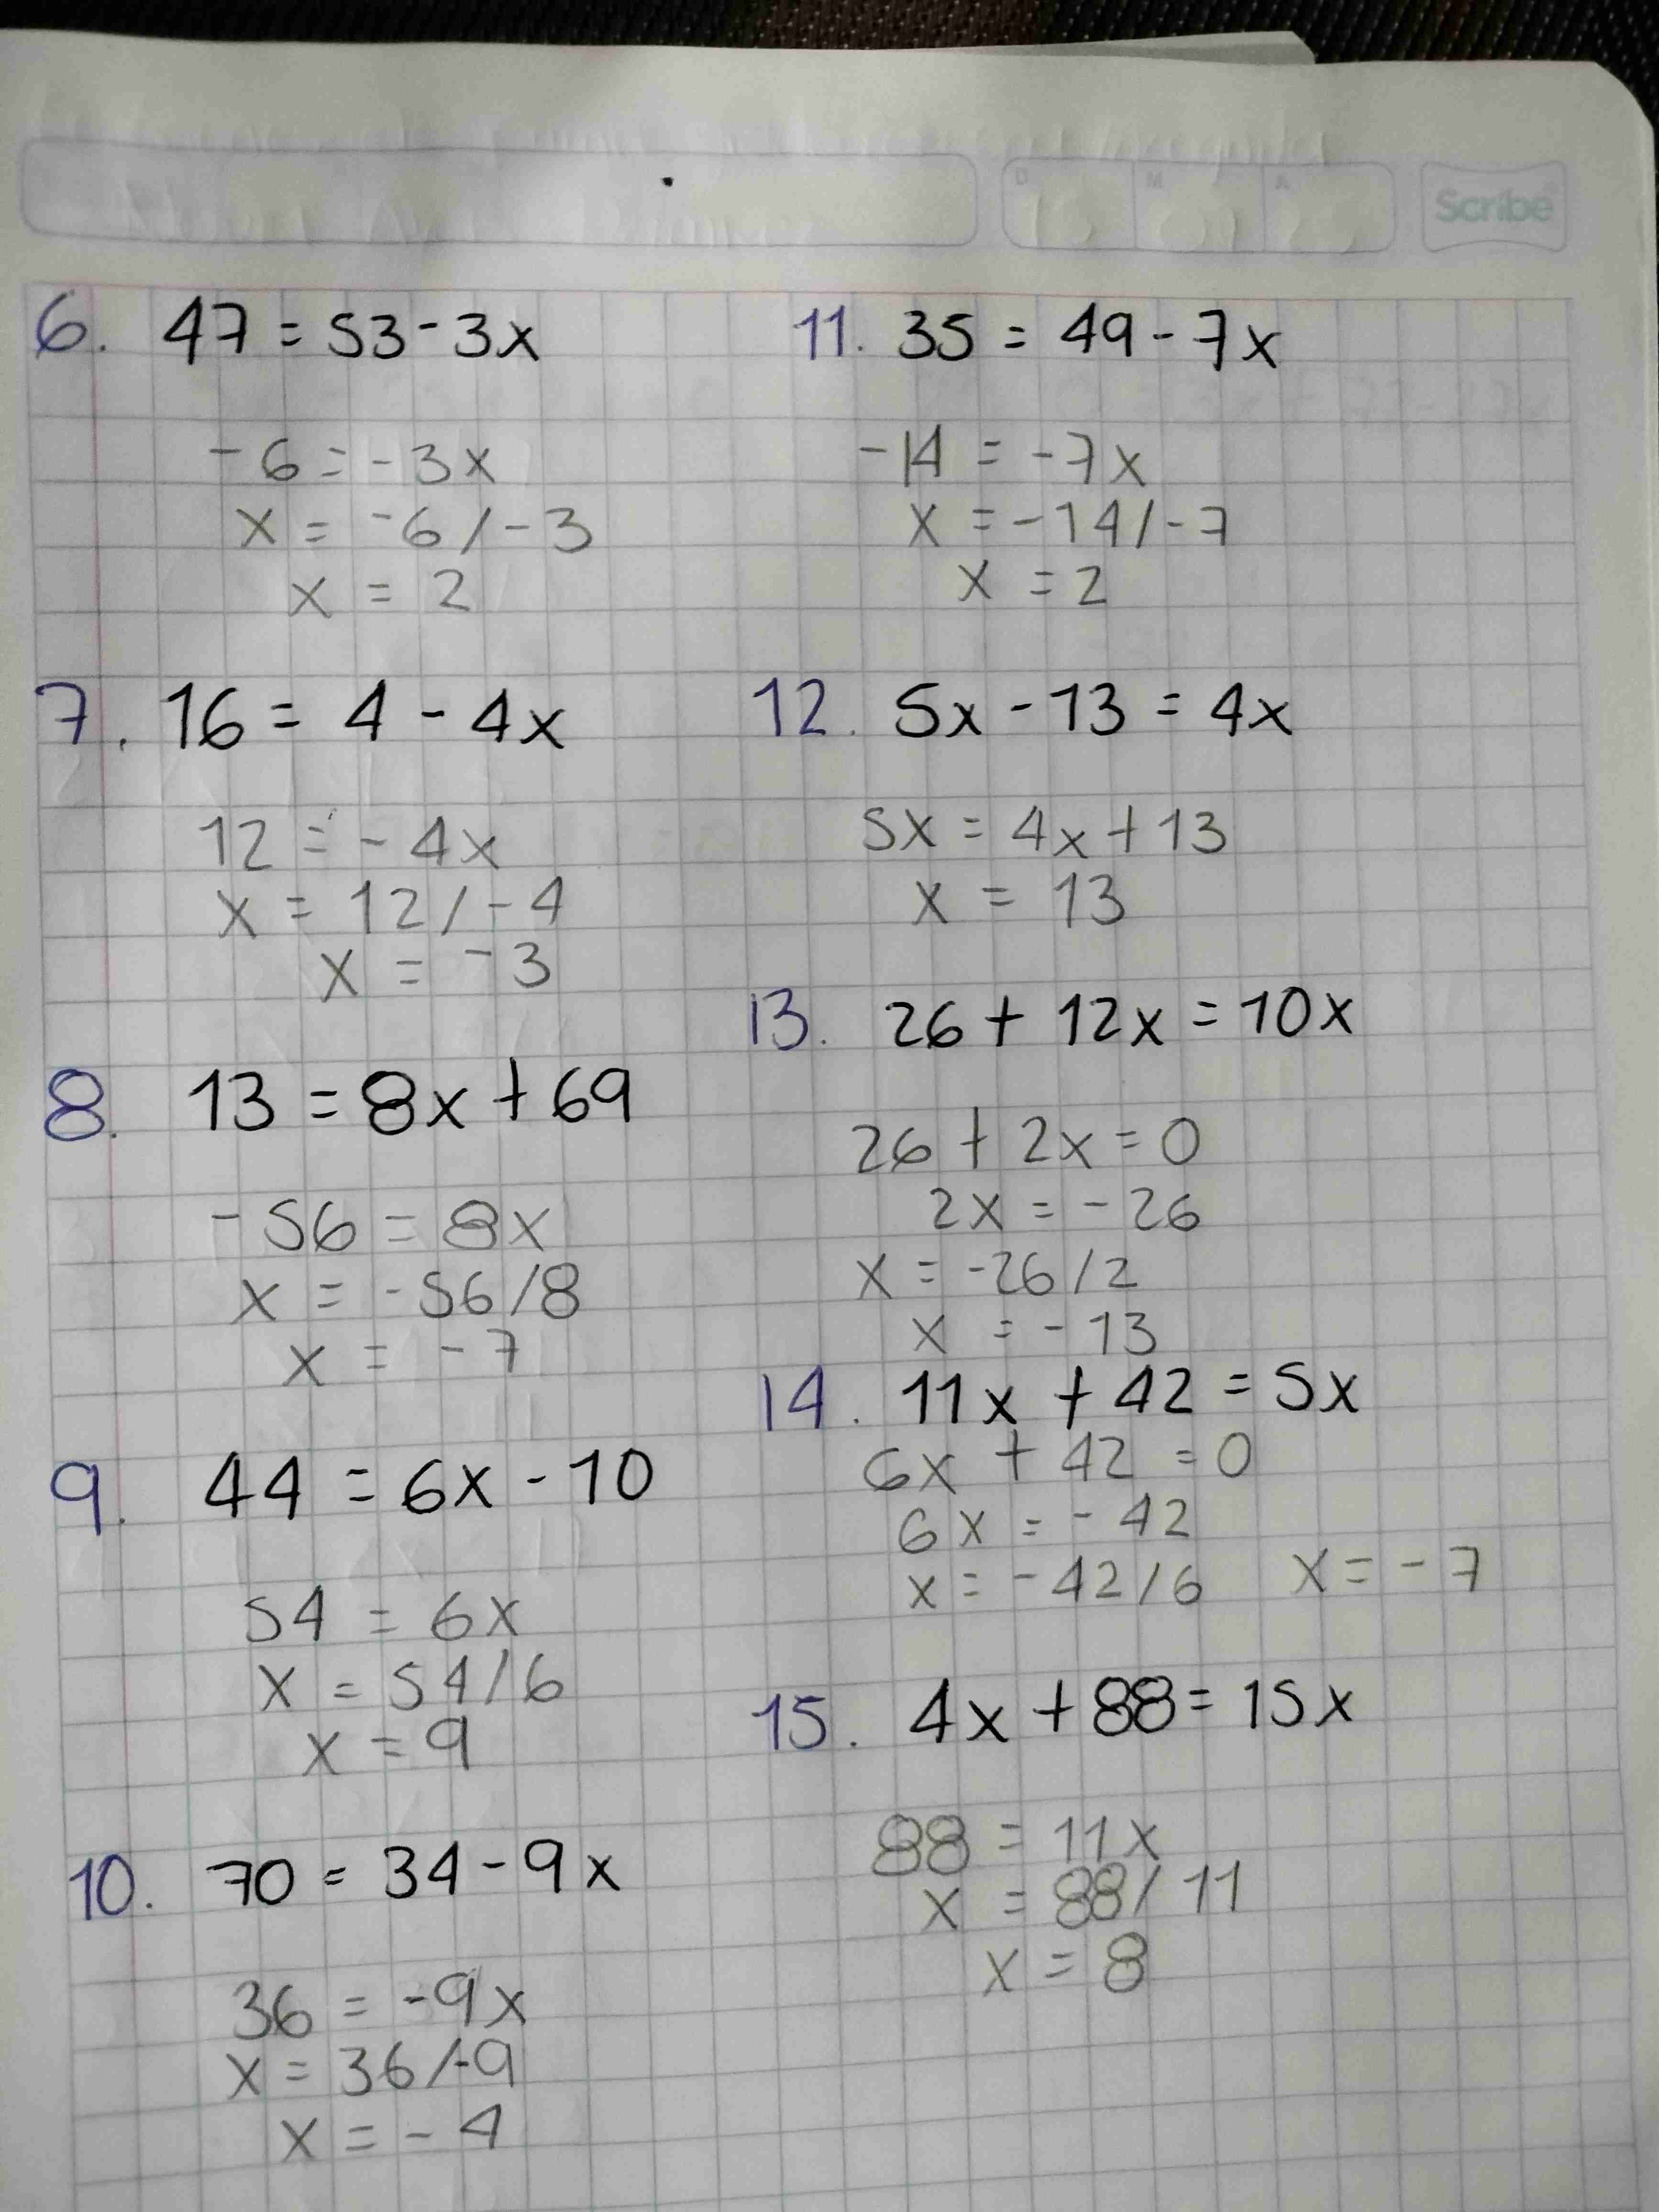 D M A
Scribe
6. 47 = 53 - 3x
-6 = -3x
x = -6 / -3
x = 2
7. 16 = 4 - 4x
12 = -4x
x = 12 / -4
x = -3
8. 13 = 8x + 69
-56 = 8x
x = -56/8
x = -7
9. 44 = 6x - 10
54 = 6x
x = 54/6
x = 9
10. 70 = 34 - 9x
36 = -9x
x = 36/-9
x = -4
11. 35 = 49 - 7x
-14 = -7x
x = -14/-7
x = 2
12. 5x - 13 = 4x
5x = 4x + 13
x = 13
13. 26 + 12x = 10x
26 + 2x = 0
2x = -26
x = -26/2
x = -13
14. 11x + 42 = 5x
6x + 42 = 0
6x = -42
x = -42/6 x = -7
15. 4x + 88 = 15x
88 = 11x
x = 88/11
x = 8